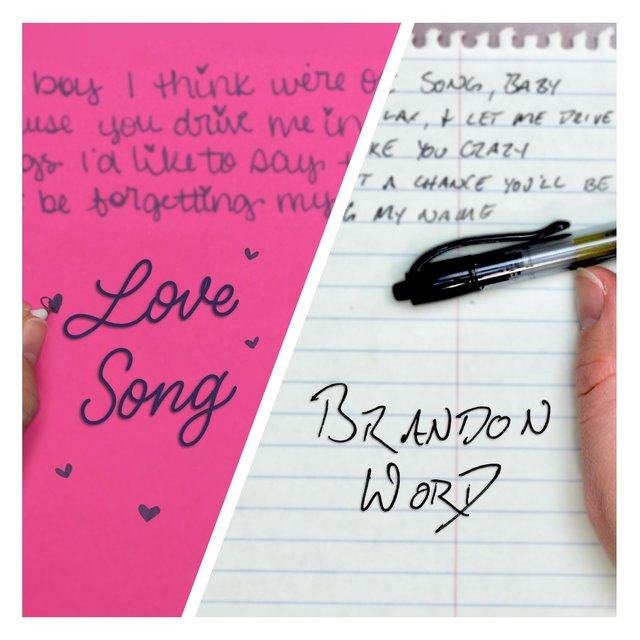 boy I think we're
use you drive me in
gs i'd like to say
be forgetting my
Love
Song
SONG, BABY
LAX, & LET ME DRIVE
KE YOU CRAZY
T A CHANCE YOU'LL BE
G MY NAME
BRANDON
WORD